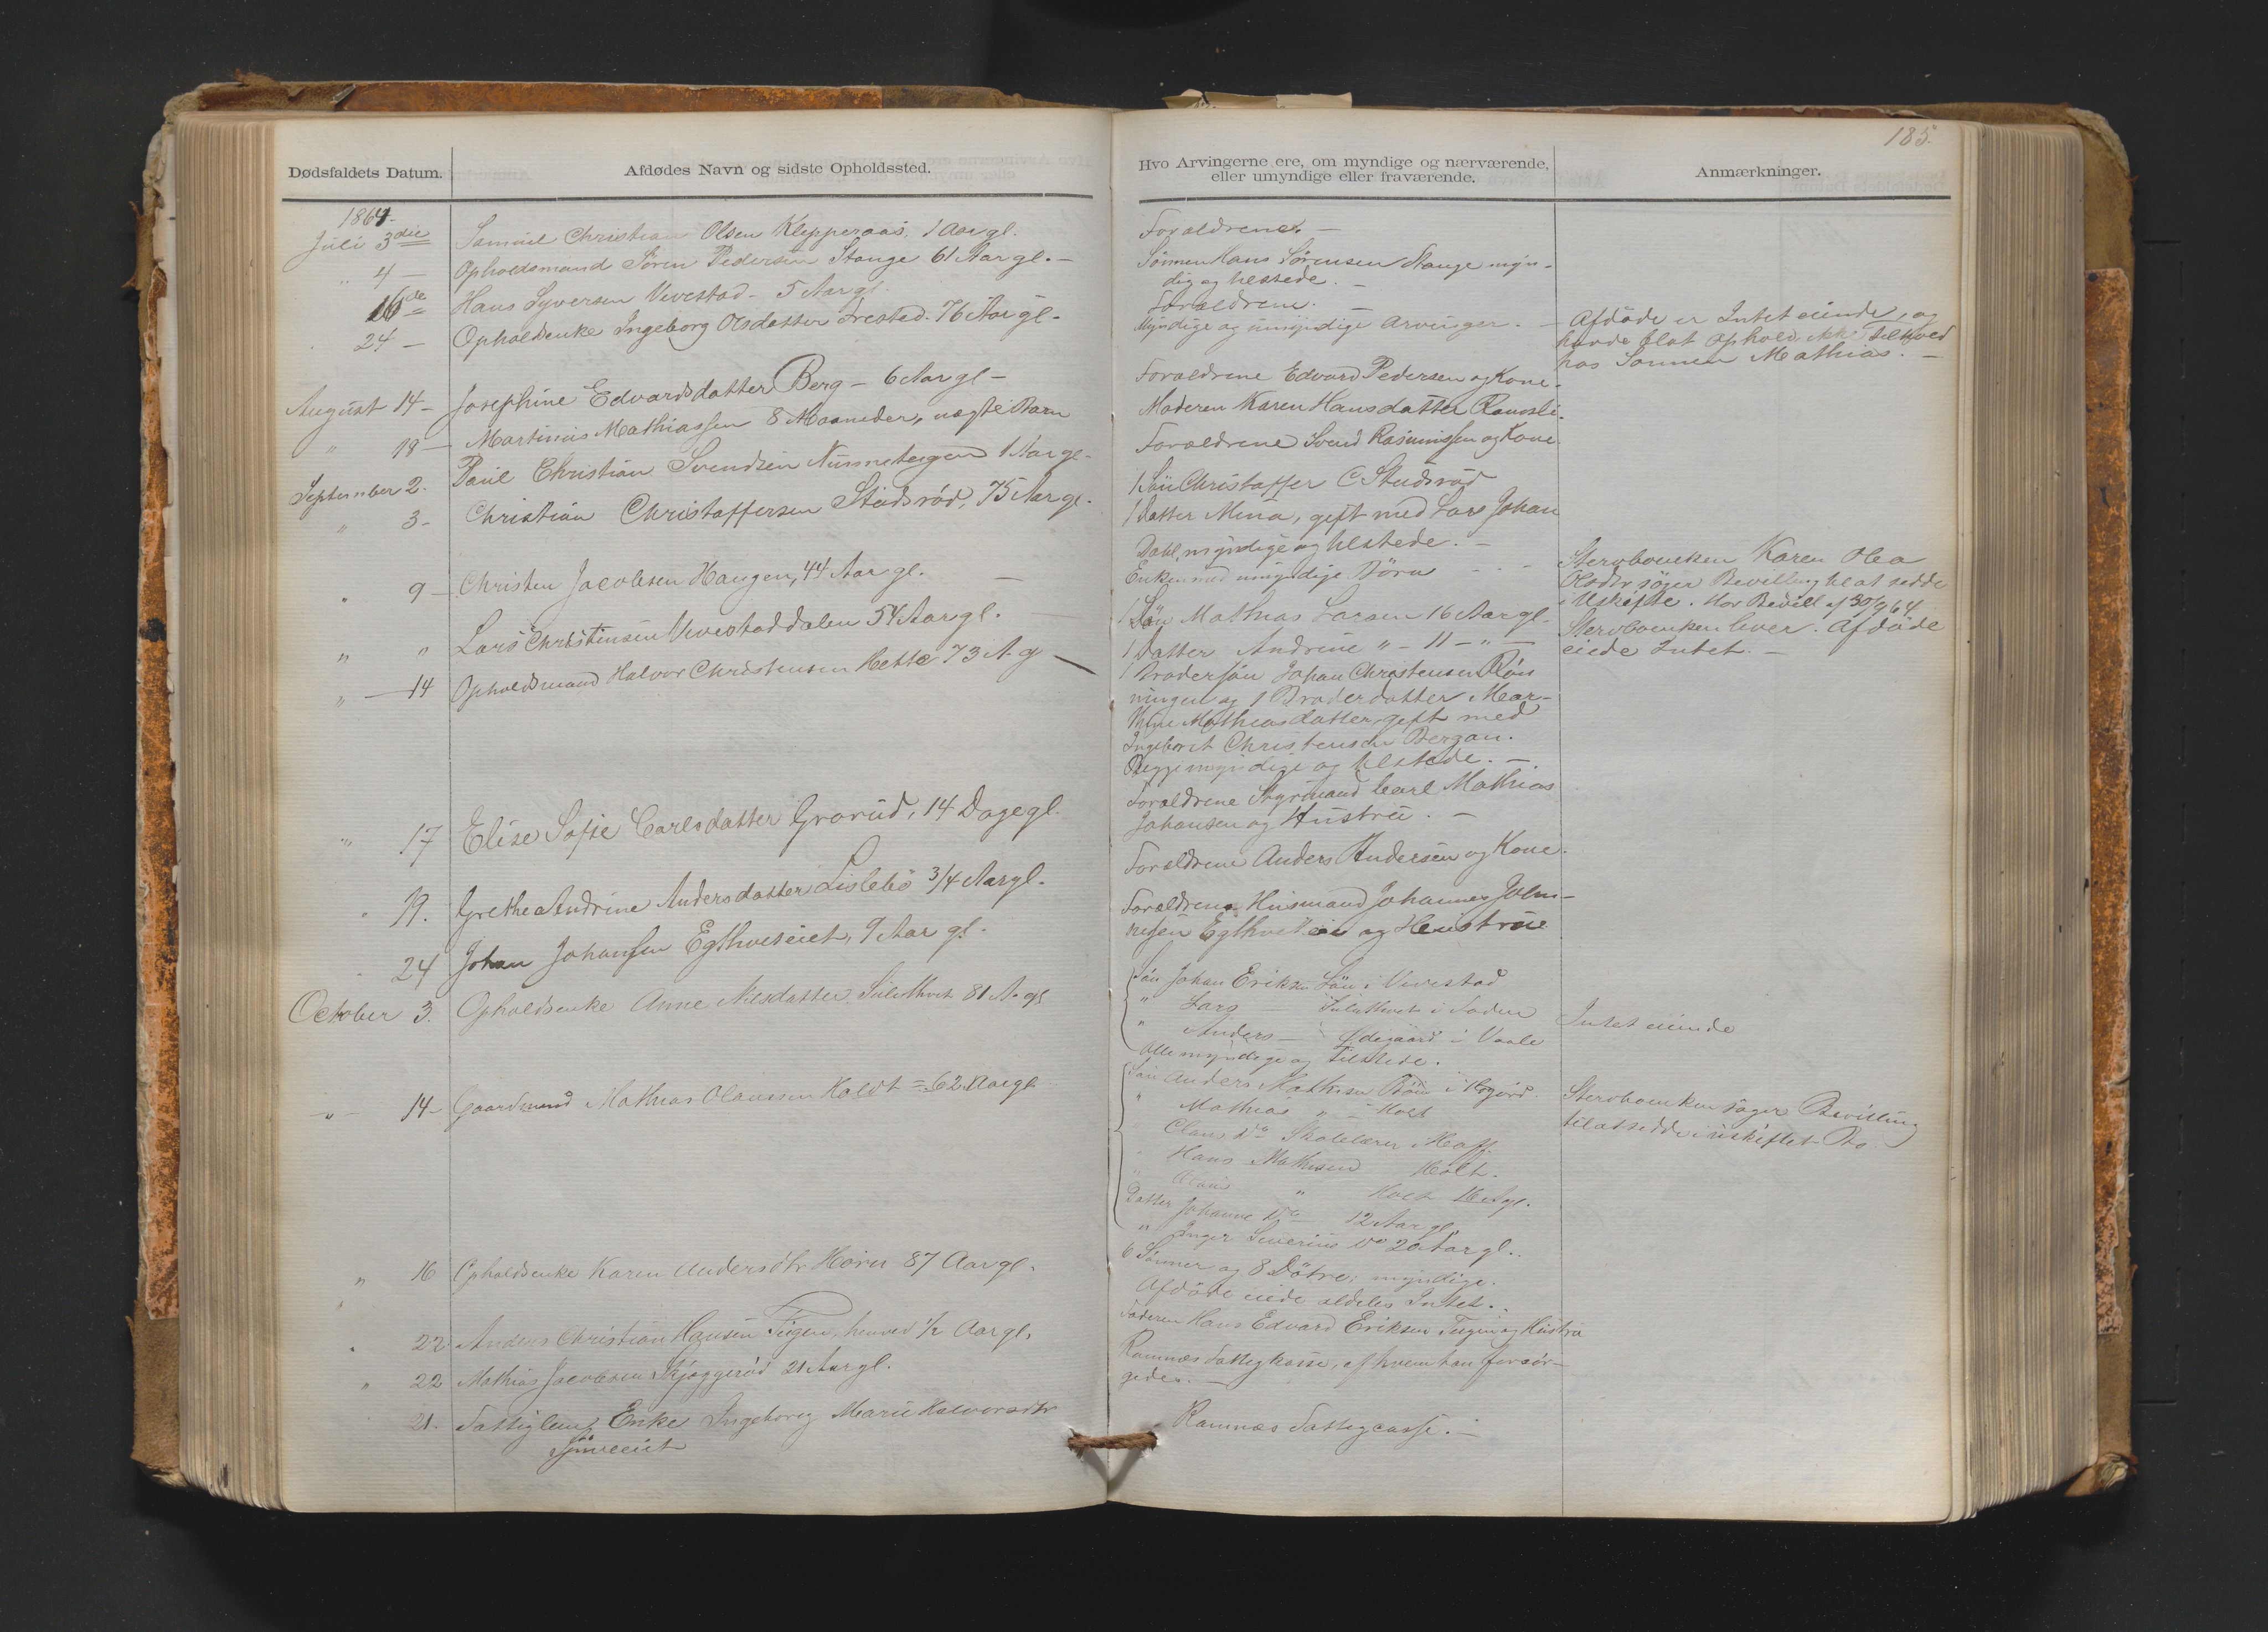 185.
Dødsfaldets Datum.
Afdødes Navn og sidste Opholdssted.
Hvo Arvingerne ere, om myndige og nærværende,
eller umyndige eller fraværende.
Anmærkninger.
1864.
Juli 3die Samuel Christian Olsen Klepperaas, 1 Aar gl.
Forældrene. —
" 4 — Opholdsmand Sören Pedersen Stange 61 Aar gl. —
Sönnen Hans Sörensen Stange myn-
dig og tilstede. —
16de Hans Syversen Vivestad - 5 Aar gl.
Forældrene.
24 — Opholdsenke Ingeborg Olsdatter Trested. 76 Aar gl. -
Myndige og umyndige Arvinger. —
Afdöde er Intet eiende, og
havde blot Ophold
hos Sönnen Mathias. —
August 14 - Josephine Edvardsdatter Berg - 6 Aar gl -
Forældrene Edvard Pedersen og Kone.
" 18 — Martinus Mathiassen 8 Maaneder, uægte Barn
Moderen Karen Hansdatter
September 2. Paul Christian Svendsen 1 Aar gl -
Forældrene Svend Rasmussen og Kone.
" 3 - Christian Christoffersen Stadsröd, 75 Aar gl.
1 Sön Christoffer C. Studsröd
1 Datter Mina, gift med Lars Johan
Dahl, myndige og tilstede. —
" 9 — Christen Jacobsen Haugen, 44 Aar gl. —
Enken med umyndige Börn - - -
Stervboenken Karen Olea
Olsdtr söger Bevilling til at sidde
i Uskifte. Har Bevill af 30/9 64
" " Lars Christensen Vivestaddalen 54 Aar gl. —
1 Sön Mathias Larsen 16 Aar gl.
1 Datter Andrine " - 11 - " -
Stervboenken lever. Afdöde
eiede Intet. —
" — 14 Opholdsmand Halvor Christensen Hette 73 A. g —
1 Brodersön Johan Christensen Rön
ningen og 1 Broderdatter Mar-
thine Mathiasdatter, gift med
Ingebret Christensen Bergan.
Begge myndige og tilstede. —
" 17 Elise Sofie Carlsdatter Grorud, 14 Dage gl.
Forældrene Styrmand Carl Mathias
Johansen og Hustru. —
" 19. Grethe Andrine Andersdatter Lislebö 3/4 Aar gl.
Forældrene Anders Andersen og Kone.
24 Johan Johansen Egthveteiet, 9 Aar gl.
Forældrene Husmand Johannes Johan-
nesen Egthveteie og Hustrue
October 3. Opholdsenke Anne Nilsdatter Sulethvet 81 A. gl
Sön Johan Eriksen Löu i Vivestad
" Lars — Sulethvet i Foden
" Anders — Ödegaard i Vaale
Alle myndige og tilstede.
Intet eiende
" — 14 - Gaardmand Mathias Olaussen Holdt - 62 Aar gl
Sön Anders Mathisen
" Mathias " — Holt
Claus do Skolelærer i Hoff
" Hans Mathisen Holt.
" " Holt 16 A gl.
Datter Johanne do 12 Aar gl.
" Inger Severine do 20 Aar gl.
Stervboenken söger Bevilling
til at sidde i uskiftet Bo -
" 16 Opholdsenke Karen Andersdtr Horn 87 Aar gl.
6 Sönner og 8 Dötre; myndige.
Afdöde eiede aldeles Intet.
" 22 Anders Christian Hansen Tugen, henved 1/2 Aar gl.
Faderen Hans Edvard Eriksen Tugen og Hustru
" 22 Mathias Jacobsen Skjæggeröd 21 Aar gl.
Ramnæs Fattigkasse, af hvem han forsör-
gedes. —
21. Fattiglem Enke Ingeborg Marie Halvorsdtr
Ramnæs Fattigcasse. —